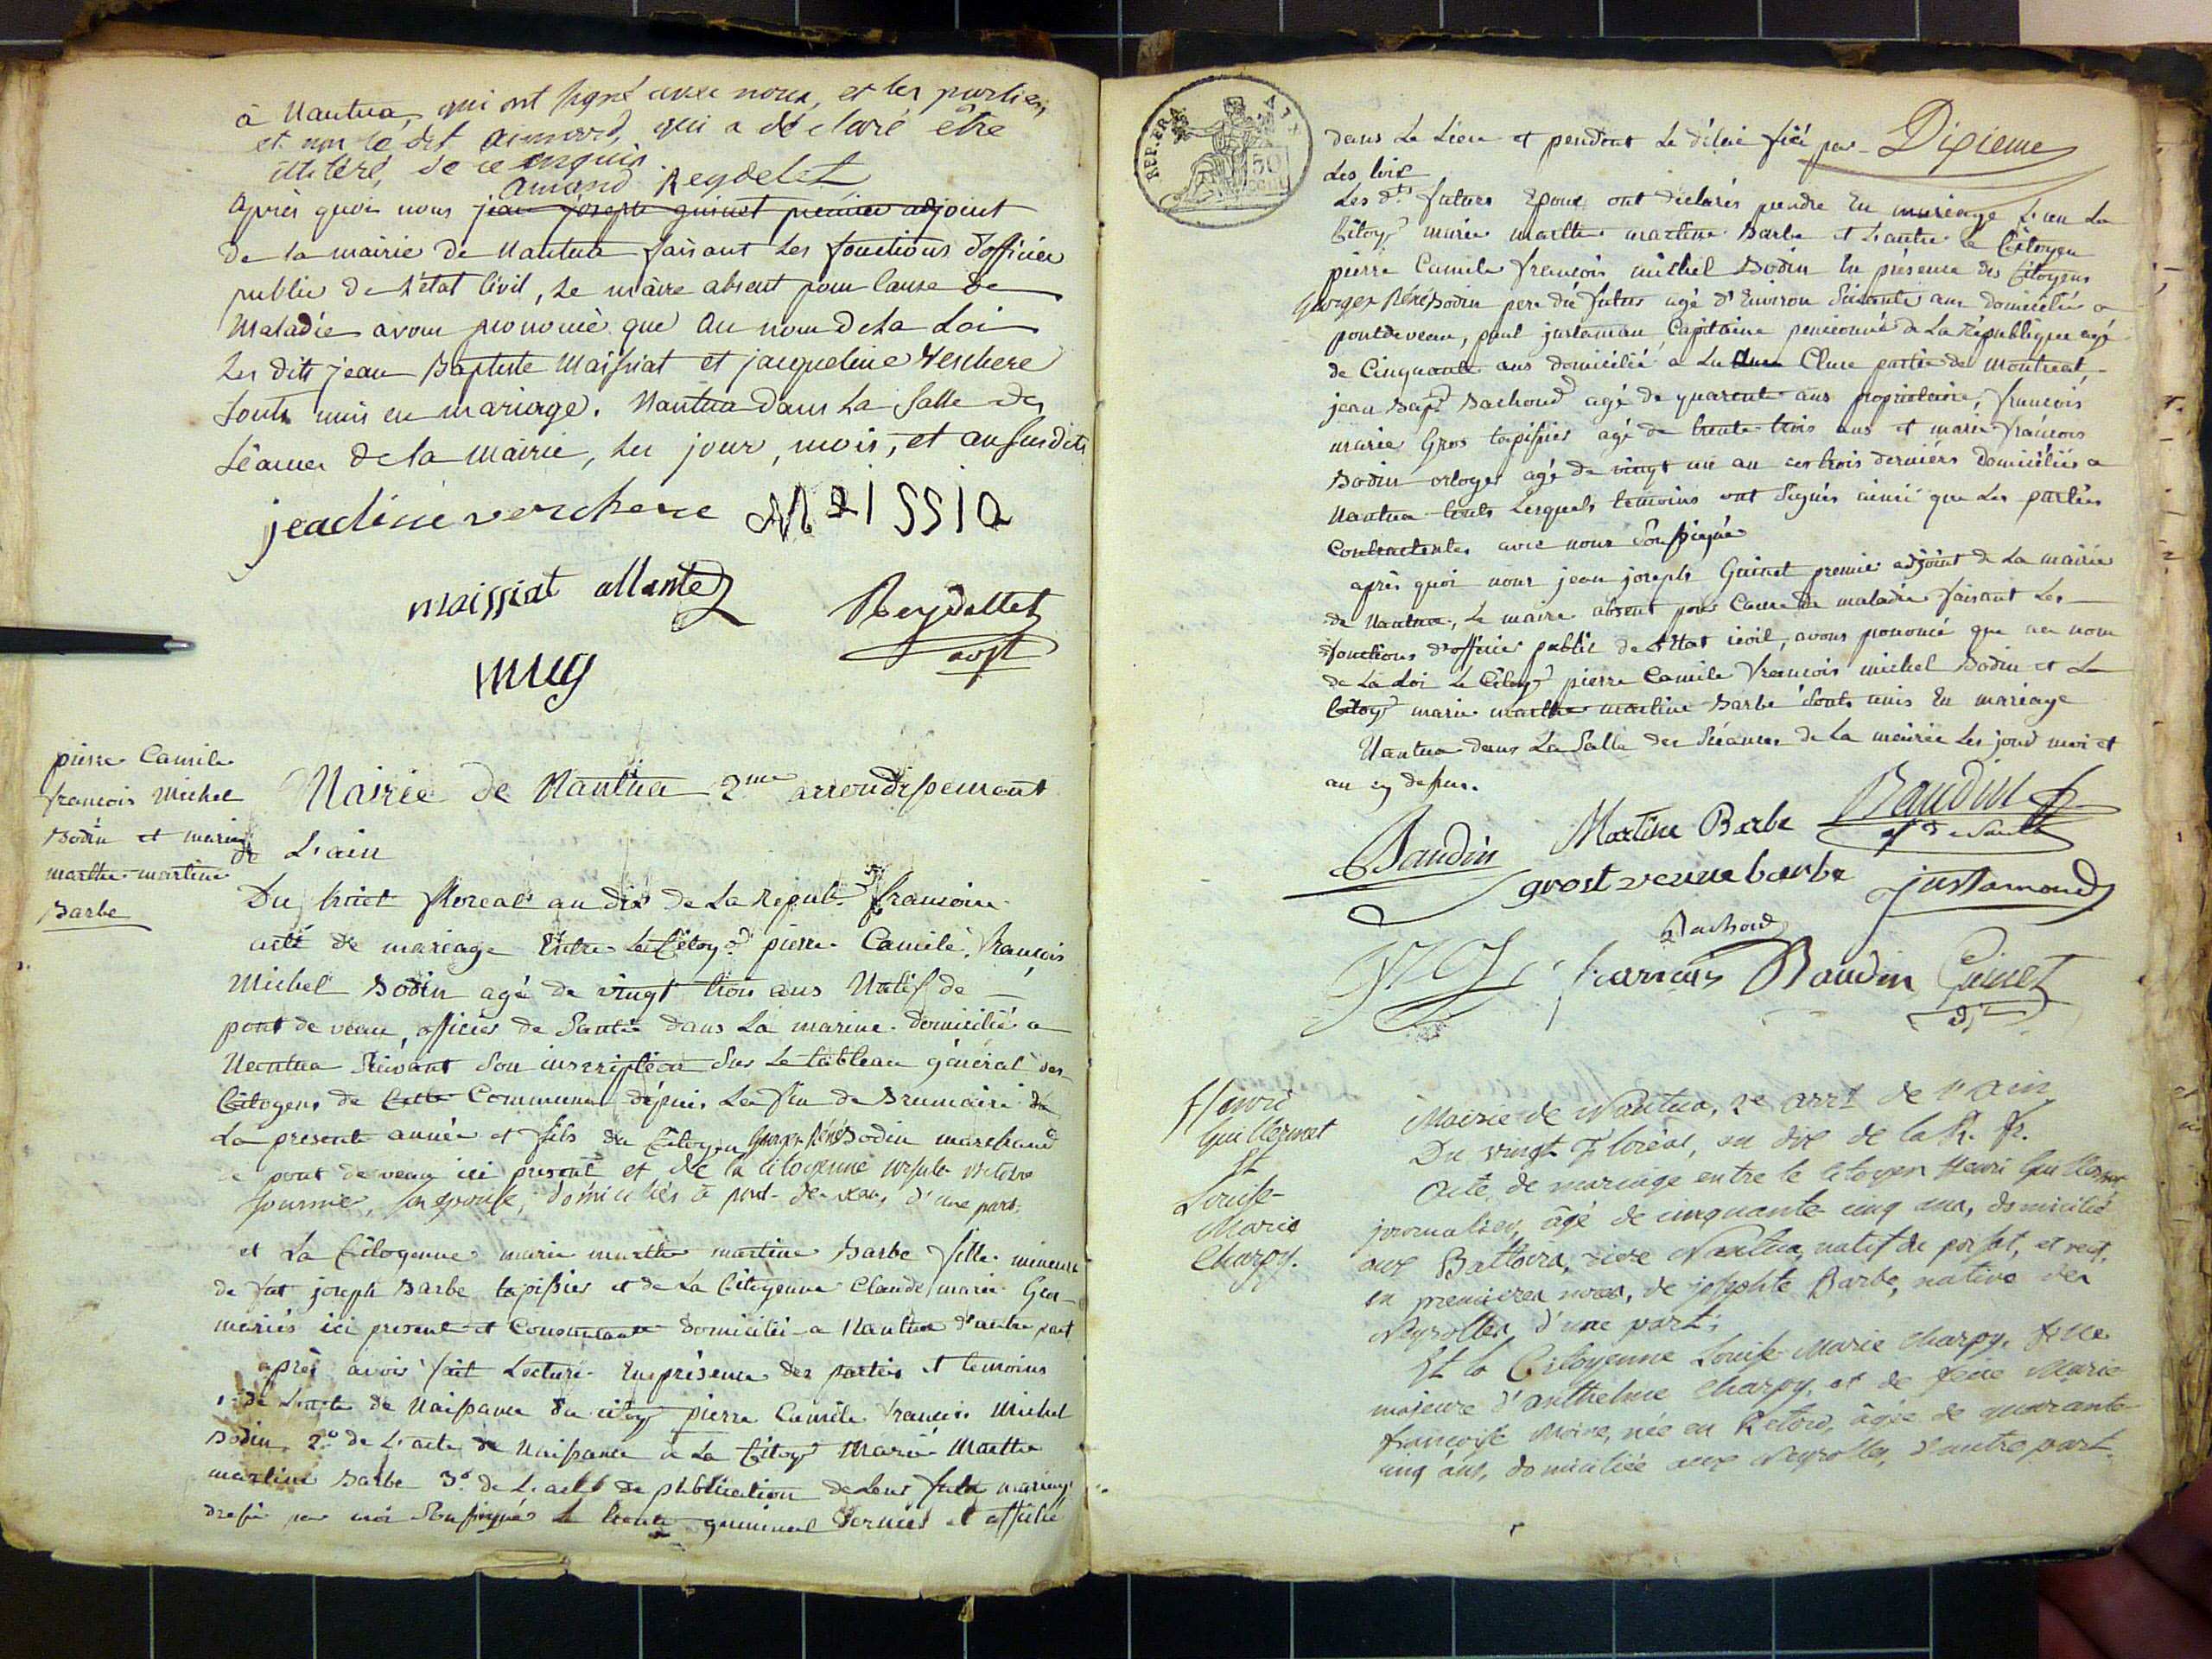 à Nantua, qui ont signé avec nous, et les parties,
et non le dit aimard, qui a déclaré être
illitéré, de ce enquis.
amand Reydelet
après quoi nous jean joseph guinet premier adjoint
de la mairie de Nantua faisant les fonctions d'officier
public de l'état Civil, le maire absent pour Cause de
Maladie avons prononcé que au nom de la Loi
les dits jean Baptiste Maissiat et jacqueline Verchere
sont unis en mariage. Nantua dans la salle des
séances de la mairie, les jour, mois, et an susdits
verchere MaISSIa
maissiat
Reydellet
pierre Camile
françois Michel
Bodin et marie
marthe martine
Barbe
Mairie de Nantua 2me arrondissement
de L'ain
Du huit floreal an dix de La Republ. francoise
acte de mariage Entre Le Citoy. pierre Camile françois
Michel Bodin agé de vingt trois ans Natif de
pont de veau, officier de santé dans La marine domicilié a
Nantua suivant son inscription sur Le tableau général des
Citoyens de Cette Commune depuis Le fin de Brumaire de
La presente année et fils du Citoyen Georges René Bodin marchand
de pont de veau ici present et de la citoyenne ursule victoire
son epouse, domiciliés à pont-de-veau, d'une part.
et La Citoyenne marie marthe martine Barbe fille mineure
de fut joseph Barbe tapissier et de La Citoyenne Claude marie Gro
mariés ici presente et Consentante domicilié a Nantua d'autre part
après avoir fait Lecture En présence des parties et temoins
1° de L'acte de Naissance du citoy. pierre Camile francois Michel
Bodin 2° de L'acte de Naissance de La Citoy. Marie Marthe
martine Barbe 3° de L'acte de publication de Leur futur mariage
dressé par moi soussigné Le trente germinal dernier et affiché
REP. FRA.
50
dans Le Lieu et pendant Le délai fixé par
Les lois
Dixieme
Les dts futurs Epoux ont déclarés prendre En mariage L'un La
Citoy. marie marthe martine Barbe et L'autre Le Citoyen
pierre Camile françois michel Bodin En présence des Citoyens
Georges René Bodin pere du futur agé d'Environ soixante ans domicilié a
pontdeveau, paul justamon, Capitaine pensionné de La République agé
de Cinquante ans domicilié a La Cluse partie de Montreal,
jean Bapt. Bachoud agé de quarente ans proprietaire, françois
marie Gros tapissier agé de trente trois ans et marie francois
Bodin orloger agé de vingt un an ces trois derniers domiciliés a
Nantua touts Lesquels temoins ont signés ainsi que Les parties
Contractantes avec nous soussigné
après quoi nous jean joseph Guinet premier adjoint de La mairie
de Nantua, Le maire absent pour Cause de maladie faisant Les
fonctions d'officier public de L'Etat civil, avons prononcé que au nom
de La Loi Le Citoy. pierre Camile francois michel Bodin et La
Citoy. marie marthe martine Barbe sont unis En mariage
Nantua dans La Salle des séances de La mairie Les jour moi et
an cy dessus.
Baudin Martine Barbe Baudin
of. de santé
grost veuve barbe justamond
Bachoud
francois Baudin Guinet
Henri
Guillermet
Et
Louise-
Marie
Charpy.
Mairie de Nantua, 2e arrt de l'ain
Du vingt Floréal, an dix de la R. fr.
Acte de mariage entre le citoyen Henri Guillermet
journalier, âgé de cinquante cinq ans, domicilié
aux Battoirs, rière Nantua, natif de
en premieres noces, de josephte Barbe, native des
Neyrolles, d'une part;
Et la Citoyenne Louise Marie Charpy, fille
majeure d'anthelme Charpy, et de feue Marie
françoise née en Retord, âgée de quarante
cinq ans, domiciliée aux Neyrolles, d'autre part.